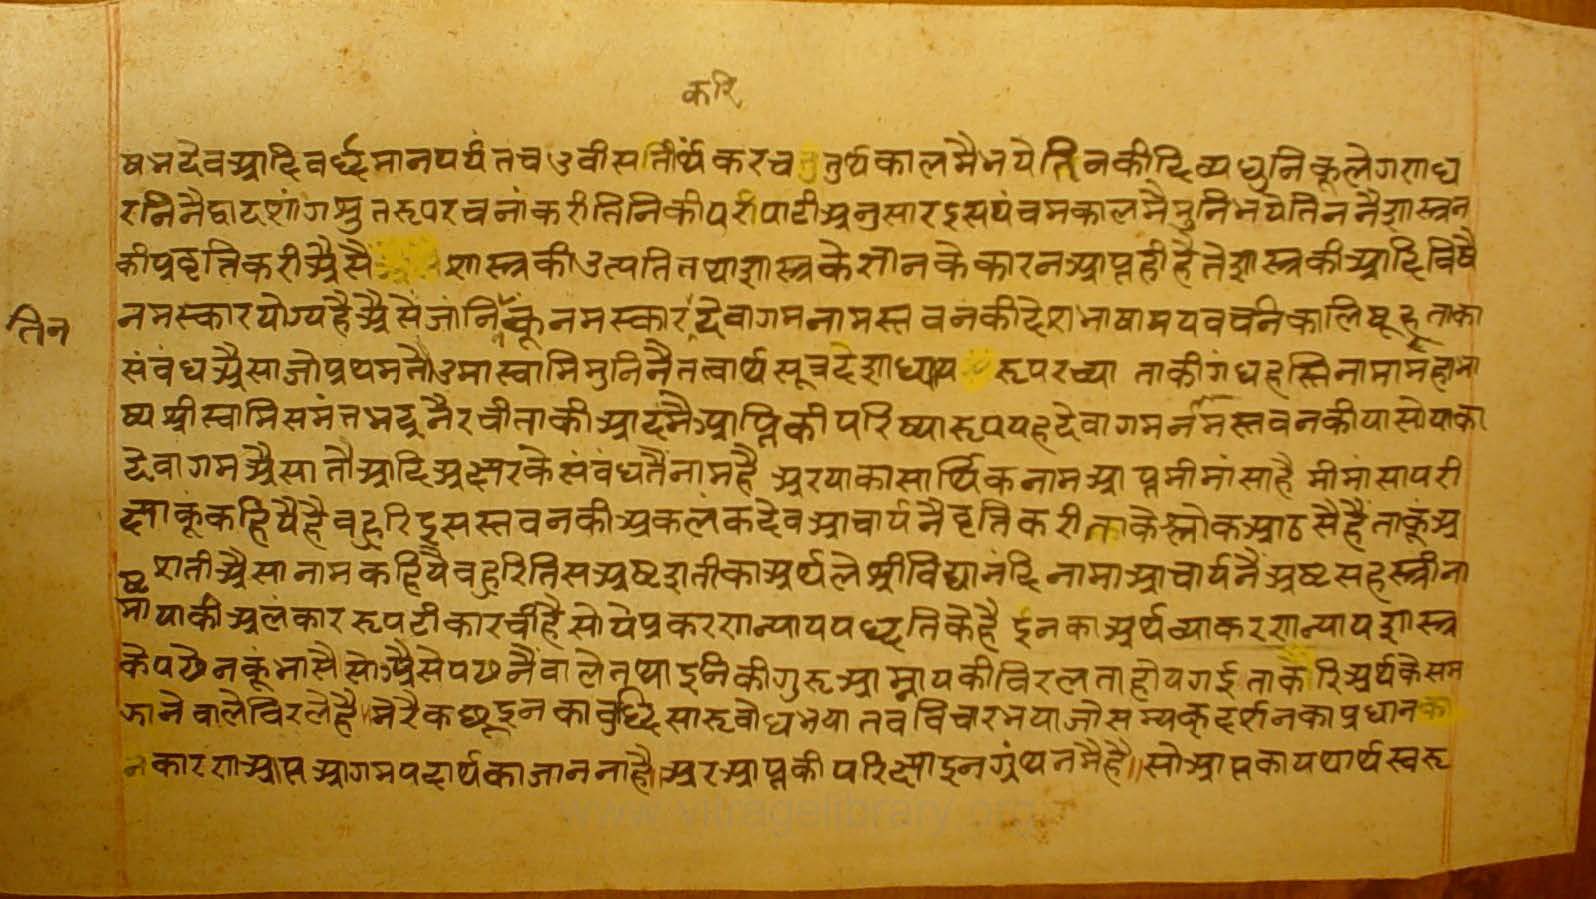 करि
षभदेवआदिवर्द्धमानपर्यंतचउवीसतीर्थंकरचतुर्थकालमैभयेतिनकीदिव्यधुनिकूलेगणध
रनिनैद्वादशांगश्रुतरूपरचनांकरीतिनिकीपरीपाटीअनुसारइसपंचमकालमैमुनिभयेतिननैशास्त्रन
कीप्रवृत्तिकरीअैसैशास्त्रकीउत्पतितथाशास्त्रकेज्ञानकेकारनआप्तहीहैतेशास्त्रकीआदिविषै
तिन
नमस्कारयोग्यहैअैसैंजांनिकूंनमस्कारदेवागमनामस्तवनकीदेशभाषामयवचनिकालिषूहूताका
संबंधअैसाजोप्रथमतौउमास्वामिमुनिनैतत्वार्थसूत्रदशाध्यायरूपरच्या ताकीगंधहस्तिनामामहाभा
ष्यश्रीस्वामिसमंतभद्रनैरचीताकीआदमैआप्तिकीपरिष्यारूपयहदेवागमनामस्तवनकीयासोयाका
देवागमअैसातौआदिअक्षरकेसंबंधतैंनामहै अरयाकासार्थिकनामआप्तमीमांसाहै मीमांसापरी
क्षाकूंकहियैहैबहुरिइसस्तवनकीअकलंकदेवआचार्यनैवृत्तिकरीताकेश्लोकआठसैहैंताकूंअ
ष्टशतीअैसानामकहियैबहुरितिसअष्टशतीकाअर्थलेश्रीविद्यानंदिनामाआचार्यनैंअष्टसहस्त्रीना
मायाकीअलंकाररूपटीकारचीहैसोयेप्रकरणन्यायपद्धतिकेहै इनकाअर्थव्याकरणन्यायशास्त्र
केपढेनकूंभासैसोअैसेपढनैंवालेतथाइनिकीगुरूआम्नायकीविरलताहोयगईताकरिअर्थकेसम
झनेवालेविरलेहै॥मेरैकछूइनकाबुद्धिसारूबोधभयातबविचारभयाजोसम्यक्दर्शनकाप्रधानका
नकारणआप्तआगमपदार्थकाजाननाहै॥अरआप्तकीपरिक्षाइनग्रंथनमैहै॥सोआप्तकायथार्थस्वरू
www.vitragelibrary.org